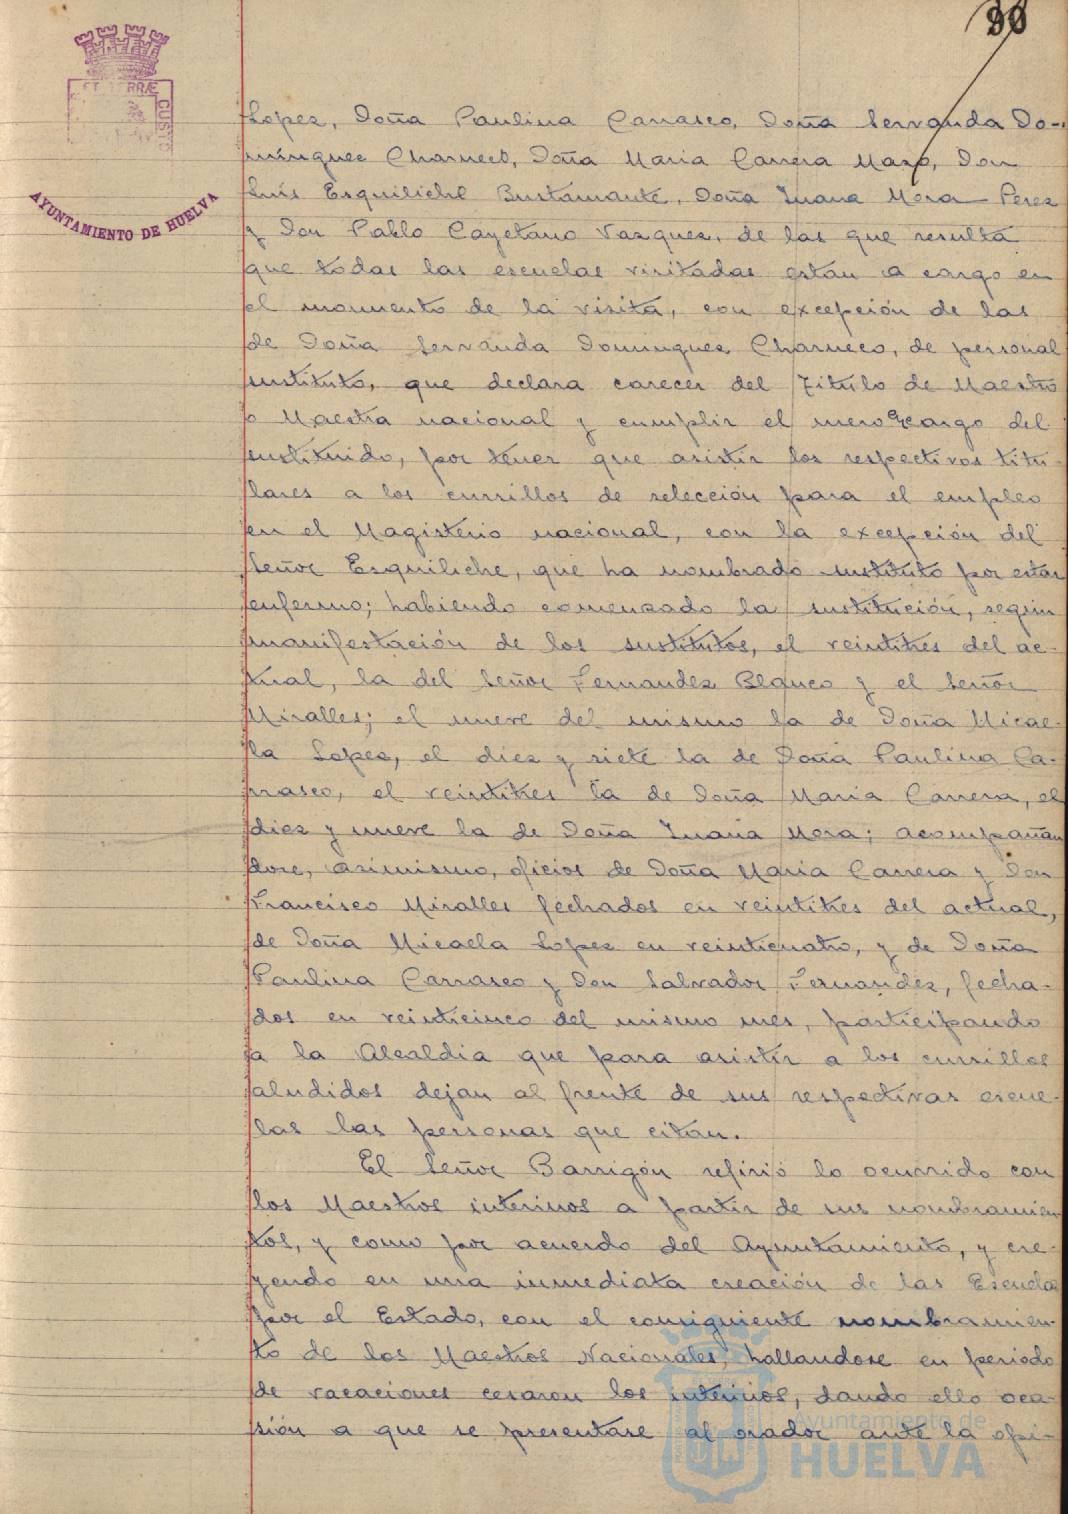 30
ET TERRÆ
CUSTO
AYUNTAMIENTO DE HUELVA
Lopez, Doña Paulina Carrasco, Doña Servanda Do-
minguez Charneco, Doña Maria Carrera Mazo, Don
Luis Esquiliche Bustamante, Doña Juana Mora Perez
y Don Pablo Cayetano Vazquez, de las que resulta
que todas las escuelas visitadas estan a cargo en
el momento de la visita, con excepción de las
de Doña Servanda Dominguez Charneco, de personal
sustituto, que declara carecer del Titulo de Maestro
o Maestra nacional y cumplir el mero encargo del
sustituido, por tener que asistir los respectivos titu-
lares a los cursillos de selección para el empleo
en el Magisterio nacional, con la excepción del
Señor Esquiliche, que ha nombrado sustituto por estar
enfermo; habiendo comenzado la sustitución, segun
manifestación de los sustitutos, el veintitres del ac-
tual, la del Señor Fernandez Blanco y el Señor
Miralles; el nueve del mismo la de Doña Micae-
la Lopez, el diez y siete la de Doña Paulina Ca-
rrasco, el veintitres la de Doña Maria Carrera, el
diez y nueve la de Doña Juana Mora; acompañan
dose, asimismo, oficios de Doña Maria Carrera y Don
Francisco Miralles fechados en veintitres del actual,
de Doña Micaela Lopez en veinticuatro, y de Doña
Paulina Carrasco y Don Salvador Fernandez, fecha-
dos en veinticinco del mismo mes, participando
a la Alcaldia que para asistir a los cursillos
aludidos dejan al frente de sus respectivas escue-
las las personas que citan.
El Señor Barrigón refirió lo ocurrido con
los Maestros interinos a partir de sus nombramien
tos, y como por acuerdo del Ayuntamiento, y cre-
yendo en una inmediata creación de las Escuelas
por el Estado, con el consiguiente nombramien-
to de los Maestros Nacionales, hallandose en periodo
de vacaciones cesaron los interinos, dando ello oca-
sión a que se presentase al orador ante la opi-
Ayuntamiento de
HUELVA